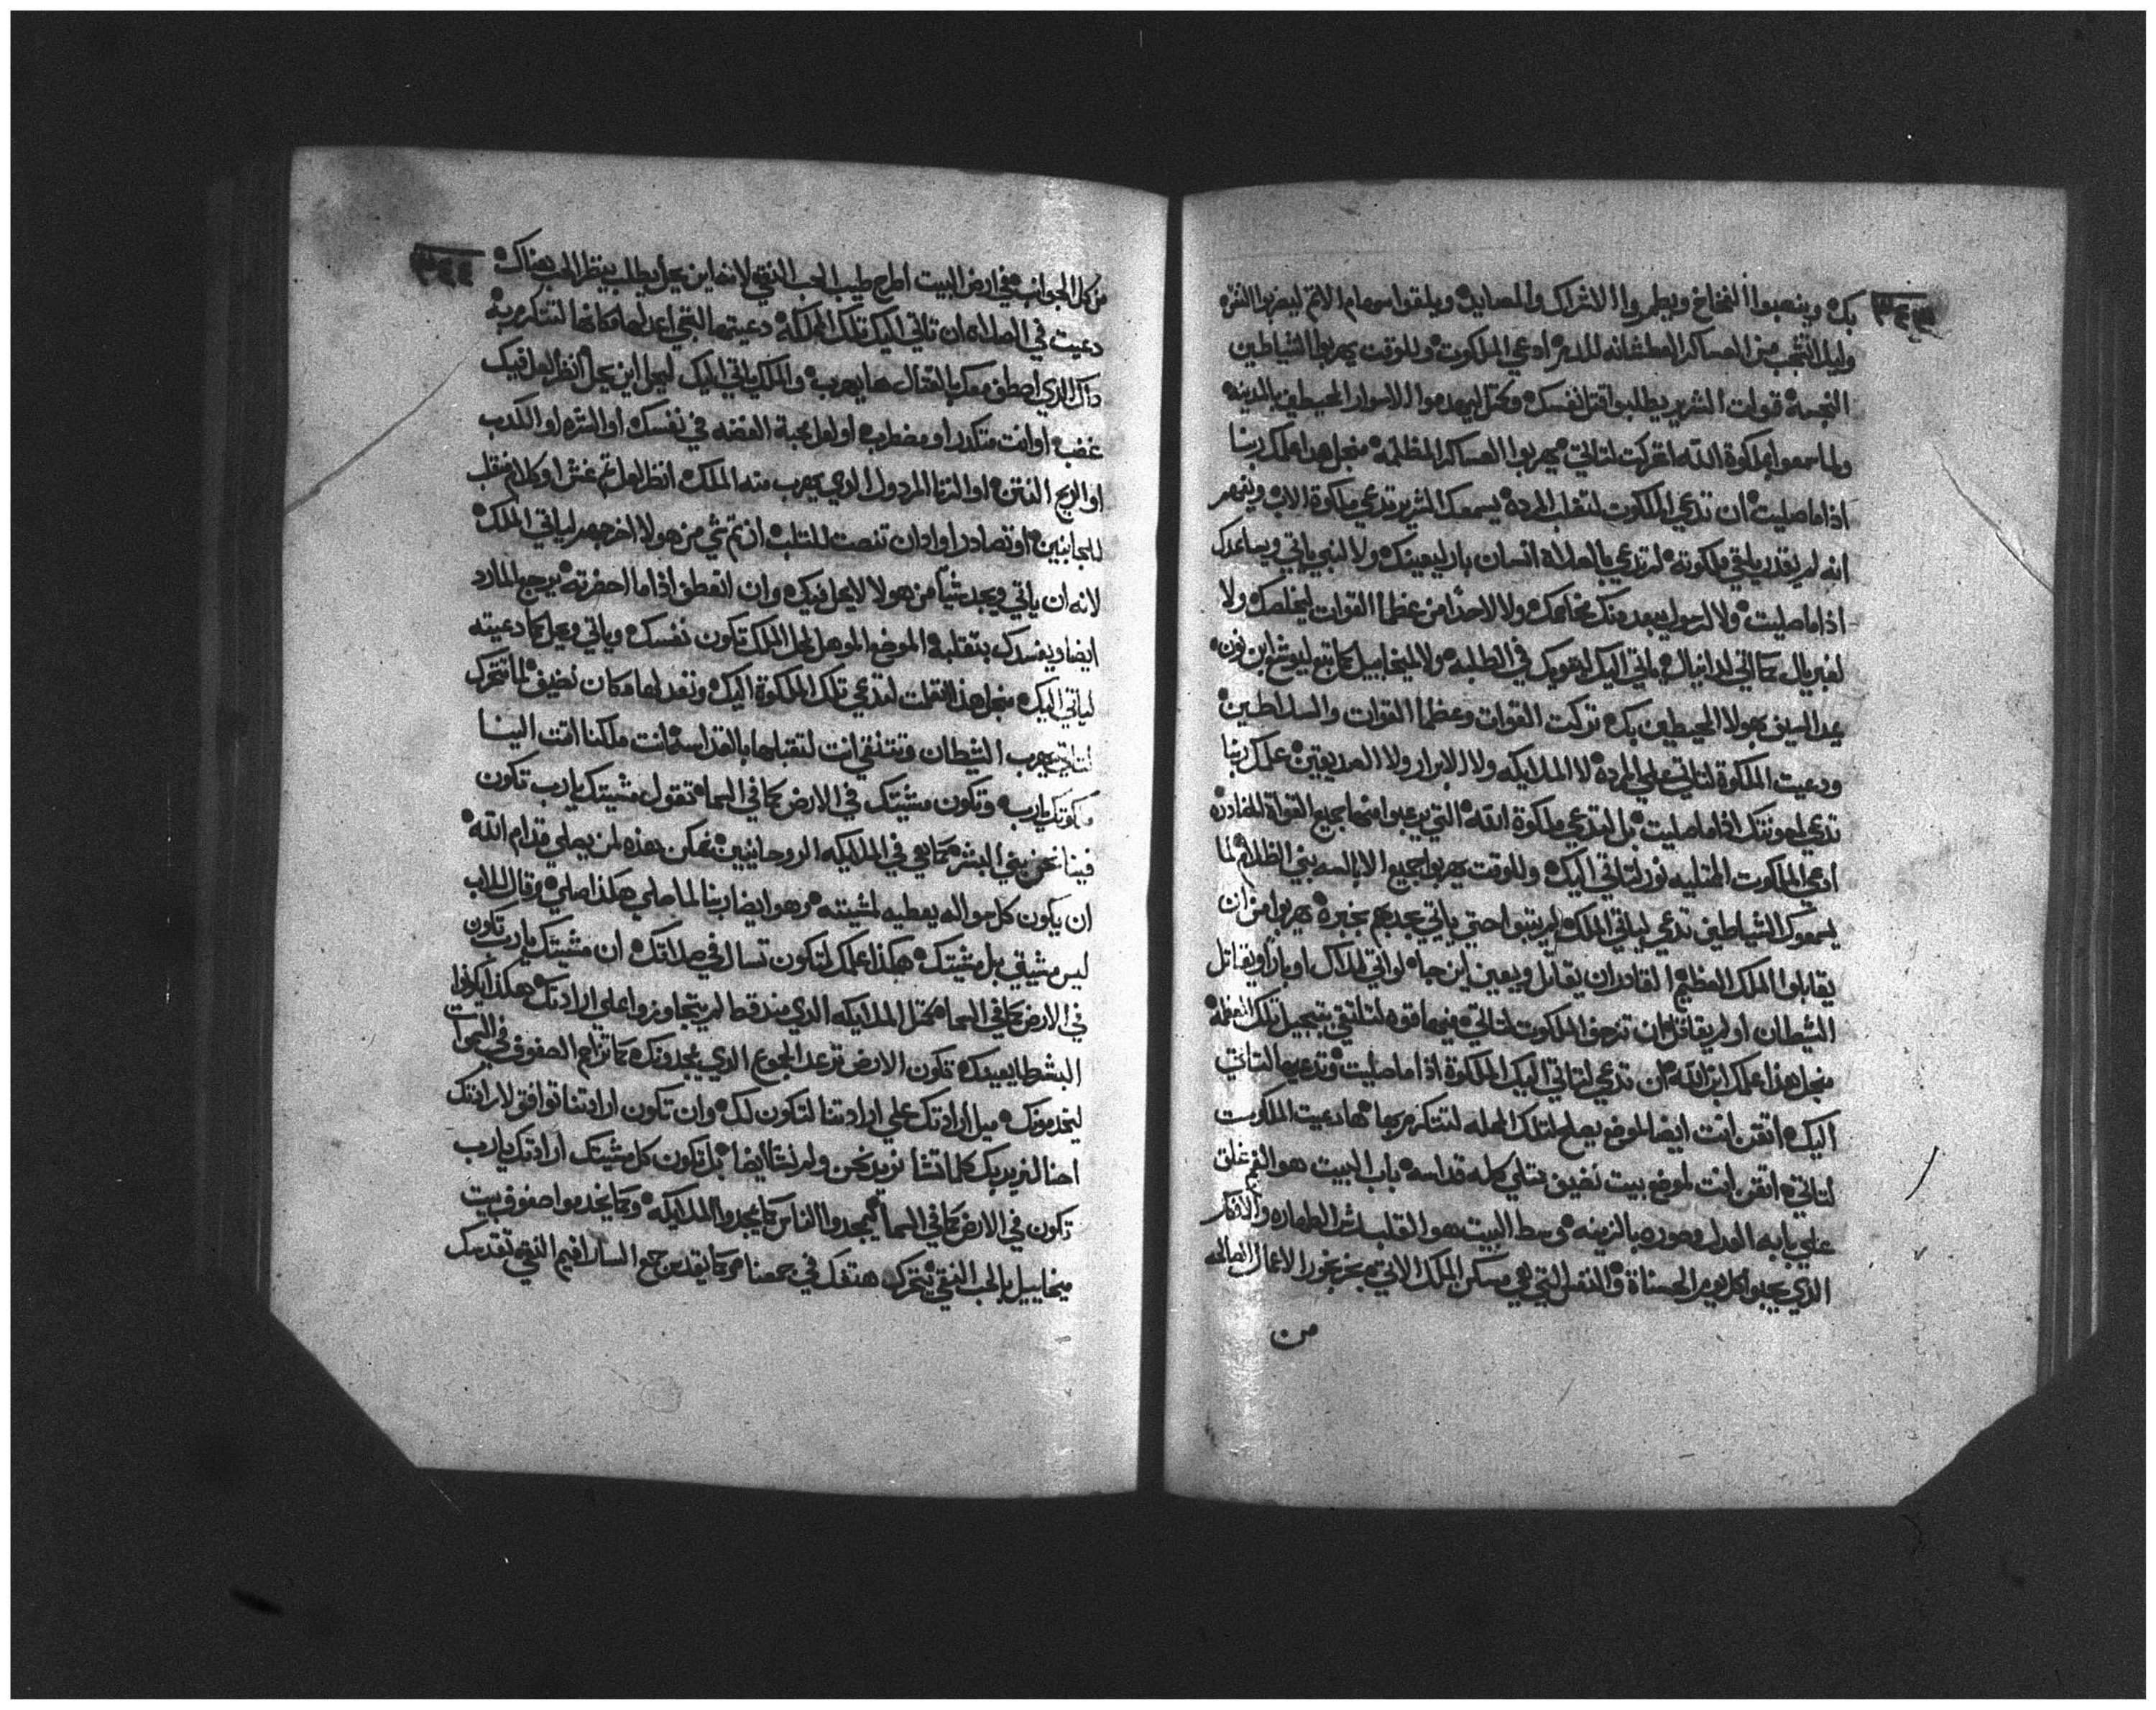 بك وينصبوا الفخاخ ويطمروا الاشراك والمصايد ويلقوا سهام الاثم ليضربوا النقره
وليلا تتعجب من العساكر العطشانه للدم ادعي الملكوت وللوقت يهربوا الشياطين
النجسة قوات الشرير يطلبوا قتل نفسك وكمثل ليهدموا الاسوار المحيطين بالمدينه
ولما سمعوا بملكوة الله اقتركت لتاتي يهربوا العساكر المظلمه منجل هدا علمك ربنا
اذا ما صليت ان تدعي الملكوت لتغلب المرده يسمعك الشرير تدعي ملكوة الاب وينهر
انه لم يقدر يلتقي ملكوته لم تدعي بالصلاة انسان بار ليعينك ولا لنبي ياتي ويساعدك
اذا ما صليت ولا لرسول يبعد منك مخاصمك ولا لاحدا من عظما القوات ليخلصك ولا
لغبريال كما اتي لدانيال ياتي اليك ليقويك في الطلبه ولا لميخاييل كما تبع ليوشع ابن نون
عد السيف بهولا المحيطين بك تركت القوات وعظما القوات والسلاطين
ودعيت الملكوة لتاتي علي المرده لا الملايكه ولا الابرار ولا الصديقين علمك ربنا
تدعي لمعونتك اذا ما صليت بل لتدعي ملكوة الله التي يرعبوا منها جميع القواة المضادده
ادعي الملكوت الممتليه نور لتاتي اليك وللوقت يهربوا جميع الابالسه بني الظلام لما
يسمعوك الشياطين تدعي لياتي الملك لم يثبتوا حتي ياتي يجدهم بخبره يهربوا من ان
يقابلوا الملك العظيم القادر ان يقاتل ويعين اين جاه لو اتي ملاك او بار او يقاتل
الشيطان او لم يقاتل ان تزحف الملكوت لتاتي منها قوه لتلتقي بتبجيل تلك العظمه
منجل هذا علمك ابن الله ان تدعي لتاتي اليك الملكوة اذا ما صليت وتدعيها لتاتي
اليك اتقن انت ايضا لموضع يصلح لتلك المحله لتتكرم بها ها دعيت الملكوت
لتاتي اتقن انت لموضع بيت نضيف متلي كله قداسه باب البيت هو الفم غلق
علي بابه العدل وصوره بالزينه وسط البيت هو القلب رش الطهاره والافكار
الذي يجبوا كل يوم الحسناة والنفس التي هي مسكن الملك الاتي بخر بخور الاعمال الصالحه
من
من كل الجوانب في ارض البيت اطرح طيب الحب النقي لانه اين يحل يطلب ينظر الحب هناك
دعيت في الصلاه ان تاتي اليك تلك المملكة دعيتها لتجي اعد لها مكانها لتتكرم به
داك الذي اصطف معك بالقتال ها يهرب والملك ياتي اليك ليحل اين يحل انظر لعل فيك
غضب او انت متكدر او مضطرب او لعل محبة الفضه في نفسك او الشره او الكدب
او الريح النتن او الزنا المردول الدي يهرب منه الملك انظر لعل تم غش او كلام منقلب
للجانبين او تصادر اوادان تنصت للثلب ان تم شي من هولا اخرجهم لياتي الملك
لانه ان ياتي ويجد شيا من هولا لا يحل فيك وان انعطف اذا ما احضرته يرجع المارد
ايضا ويفسدك بتقلبه الموضع الموهل لحل الملك تكون نفسك وياتي ويحل كما دعيته
لياتي اليك منجل هذا تعلمت لتدعي تلك الملكوة اليك وتعد لها مكان نضيف لما تتحرك
لتاتي يهرب الشيطان وتتنقي انت لتقبلها بالقداسه انت ملكنا اتت الينا
ملكوتك يارب وتكون مشيتك في الارض كما في السما تقول مشيتك يارب تكون
فينا نحن بني البشر كما هي في الملايكه الروحانيين تمكن بهذه لمن يصلي قدام الله
ان يكون كل سواله يعطيه لمشيته وهو ايضا ربنا لما صلي هكذا صلي وقال للاب
ليس مشيتي بل مشيتك هكذا علمك لتكون تسال في صلاتك ان مشيتك يارب تكون
في الارض كما في السما كمثل الملايكه الدي منذ قط لم يتجاوزوا علي ارادتك هكذا ليكونوا
البشر طايعينك تكون الارض ترعد الجموع الدي يمجدونك كما تزاحم الصفوف في السموات
ليخدمونك ميل ارادتك علي ارادتنا لتكون لك وان تكون ارادتنا توافق لارادتك
احنا لنريد بك كلما تشا نريد نحن ولم نشا ايضا بل تكون كل مشيتك ارادتك يارب
تكون في الارض كما في السما ليمجدوا الناس كما يمجدوا الملايكه وكما يخدموا صفوف بيت
ميخاييل بالحب النقي يتحرك هتفك في جمعنا وكما يقدس جمع السارافيم النقي تقدسك